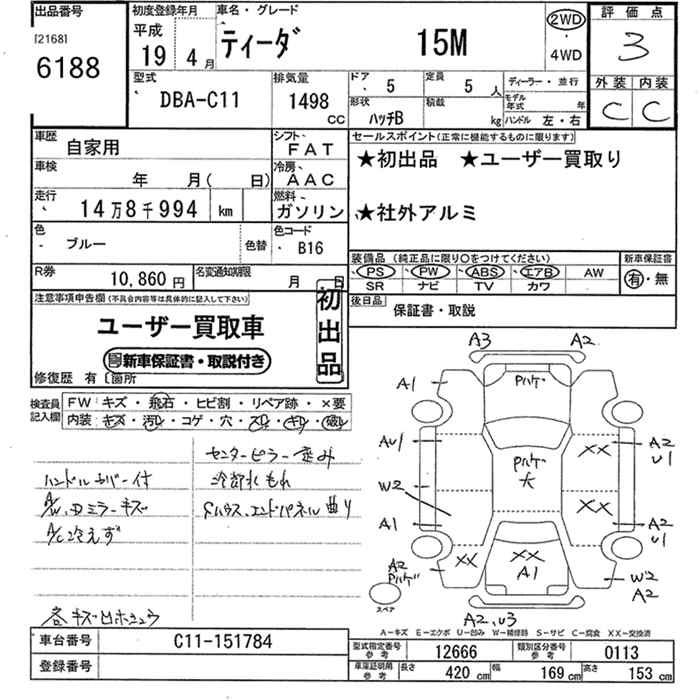 出品番号
[2168]
6188
初度登録年月
平成
19年 4月
車名・グレード
ティーダ 15M
2WD
・
4WD
評価点
3
外装 内装
C C
型式
DBA-C11
排気量
1498
CC
ドア 5
定員 5人
形状 ハッチB
積載 kg
ディーラー・並行
モデル年式 年
ハンドル 左・右
車歴
自家用
シフト
FAT
車検
年 月( 日)
冷房
AAC
走行
14万8千994 km
燃料
ガソリン
色
ブルー
色替
色コード
B16
R券
10,860円
名変通知期限
月 日
セールスポイント(正常に機能するものに限ります)
★初出品 ★ユーザー買取り
★社外アルミ
装備品 (純正品に限り〇をつけてください)
PS PW ABS エアB AW
SR ナビ TV カワ
新車保証書
有・無
後日品
保証書・取説
注意事項申告欄(不具合内容等は具体的に記入して下さい)
ユーザー買取車
新車保証書・取説付き
初出品
修復歴 有 〔箇所
検査員記入欄
FW:キズ・飛石・ヒビ割・リペア跡・×要
内装:キズ・汚れ・コゲ・穴・スレ・ギレ・破れ
センターピラー歪み
ハンドルカバー付
冷却水もれ
A/W、Dミラーキズ
Sハウス、エンドパネル曲り
A/C冷えず
各キズ凹ホシュウ
A3 A2
A1
Pハゲ
AU1
Pハゲ
大
XX
A2
U1
W2
XX
A1
A2
U1
A2
Pハゲ
XX
XX
A1
W2
A2
スペア
A2、U3
A-キズ E-エクボ U-凹み W-補修跡 S-サビ C-腐食 XX-交換済
車台番号
C11-151784
登録番号
型式指定番号参考
12666
類別区分番号参考
0113
車庫証明用参考
長さ 420 cm
幅 169 cm
高さ 153 cm